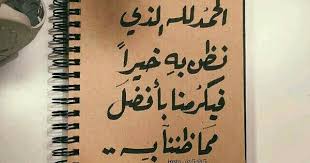 الحمد لله الذي
نظن به خيراً
فيكرمنا بأفضل
مما ظننا به ..